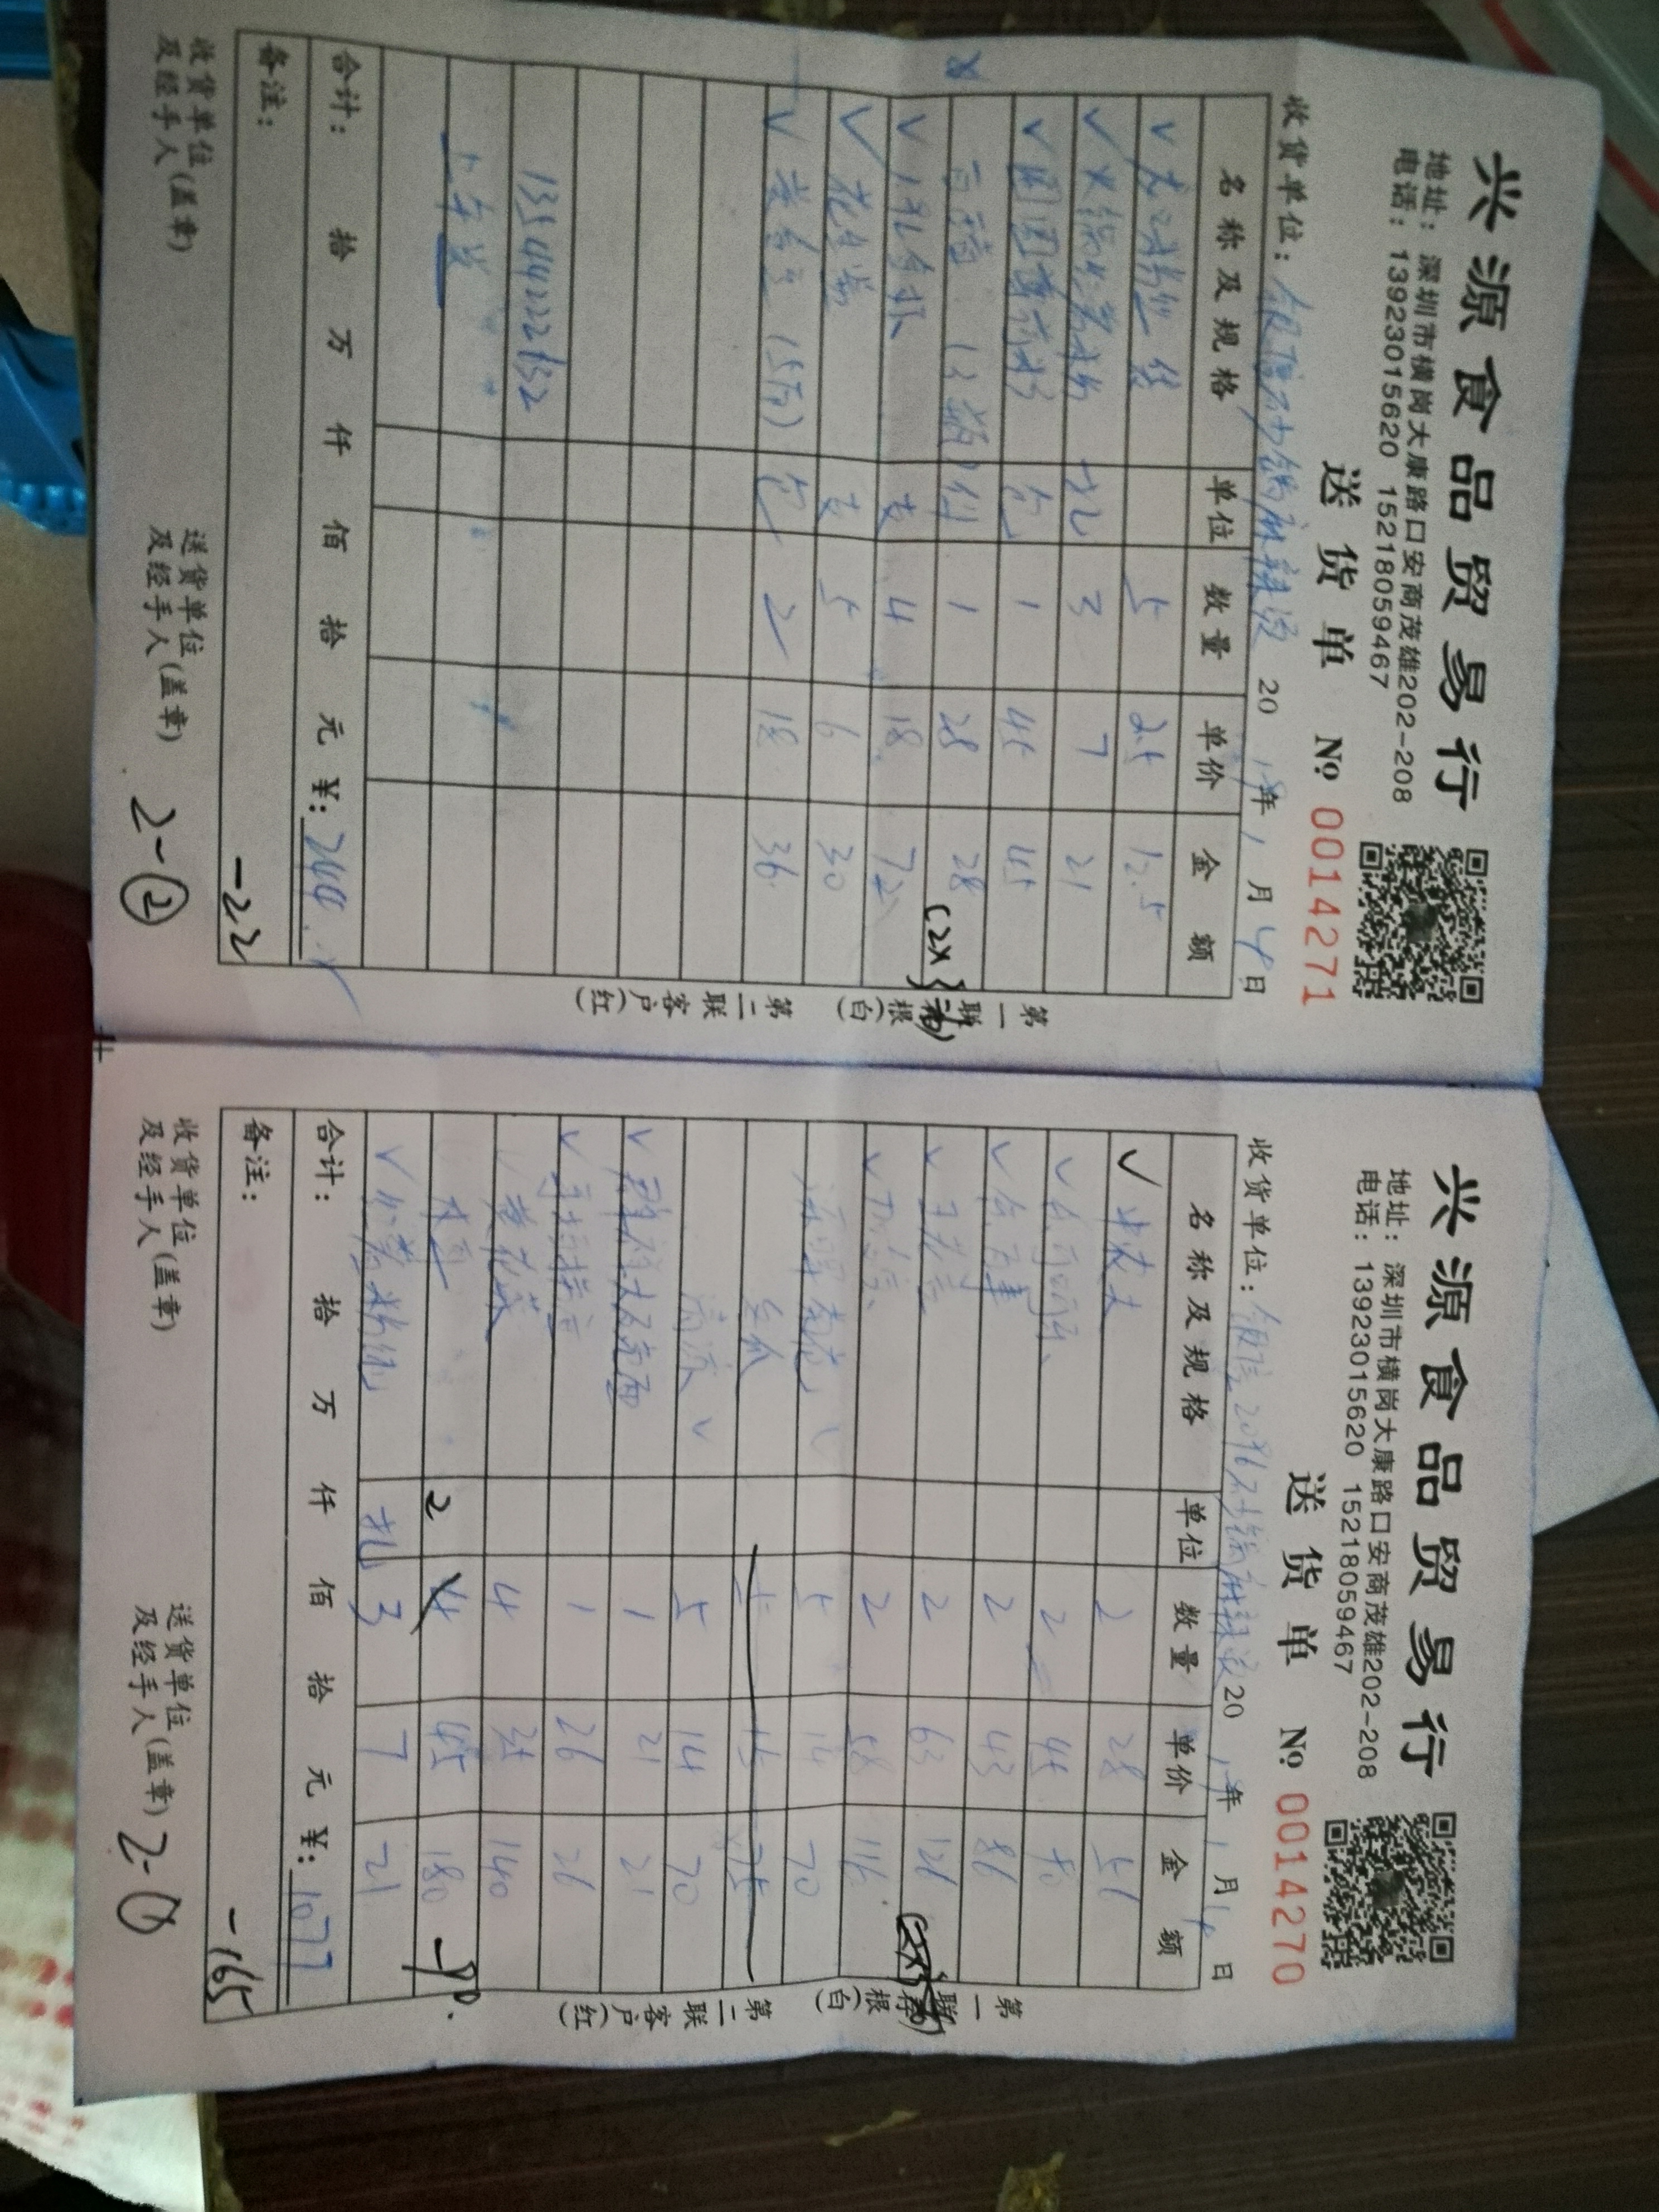 兴源食品贸易行
地址：深圳市横岗大康路口安商茂雄202-208
电话：13923015620 15218059467
送货单 № 0014271
收货单位：银信砂锅麻辣烫 2019年1月4日
名称及规格 单位 数量 单价 金额
✓ 龙口粉丝 袋 5 2.5 12.5
✓ 火锅红薯粉 扎 3 7 21
✓ 包 1 45 45
(3瓶) 件 1 28 28
(2×3
✓ 支 4 18 72
✓ 花生酱 支 5 6 30
✓ 黄金豆 (5斤) 包 2 18 36
13544222632
上午送
合计： 拾 万 仟 佰 拾 元 ¥: 244.
备注：
-22
收货单位及经手人(盖章)
送货单位及经手人(盖章)
2-②
第一联存根(白) 第二联客户(红)
兴源食品贸易行
地址：深圳市横岗大康路口安商茂雄202-208
电话：13923015620 15218059467
送货单 № 0014270
收货单位：银信 砂锅麻辣烫 2019年1月4日
名称及规格 单位 数量 单价 金额
✓ 中农夫 2 28 56
✓ 可乐 2 45 90
✓ 百事 2 43 86
✓ 王老吉 2 63 126
✓ 加多宝 2 58 116
菊花 ✓ 5 14 70
冬瓜 5 15 75
清凉 ✓ 5 14 70
✓ 群祥大碗面 1 21 21
✓ 1 26 26
黄花菜 4 35 140
木耳 2 4 45 180 -90.
✓ 红薯粉 扎 3 7 21
合计： 拾 万 仟 佰 拾 元 ¥: 1077
备注：
-165
收货单位及经手人(盖章)
送货单位及经手人(盖章)
2-①
第一联存根(白) 第二联客户(红)